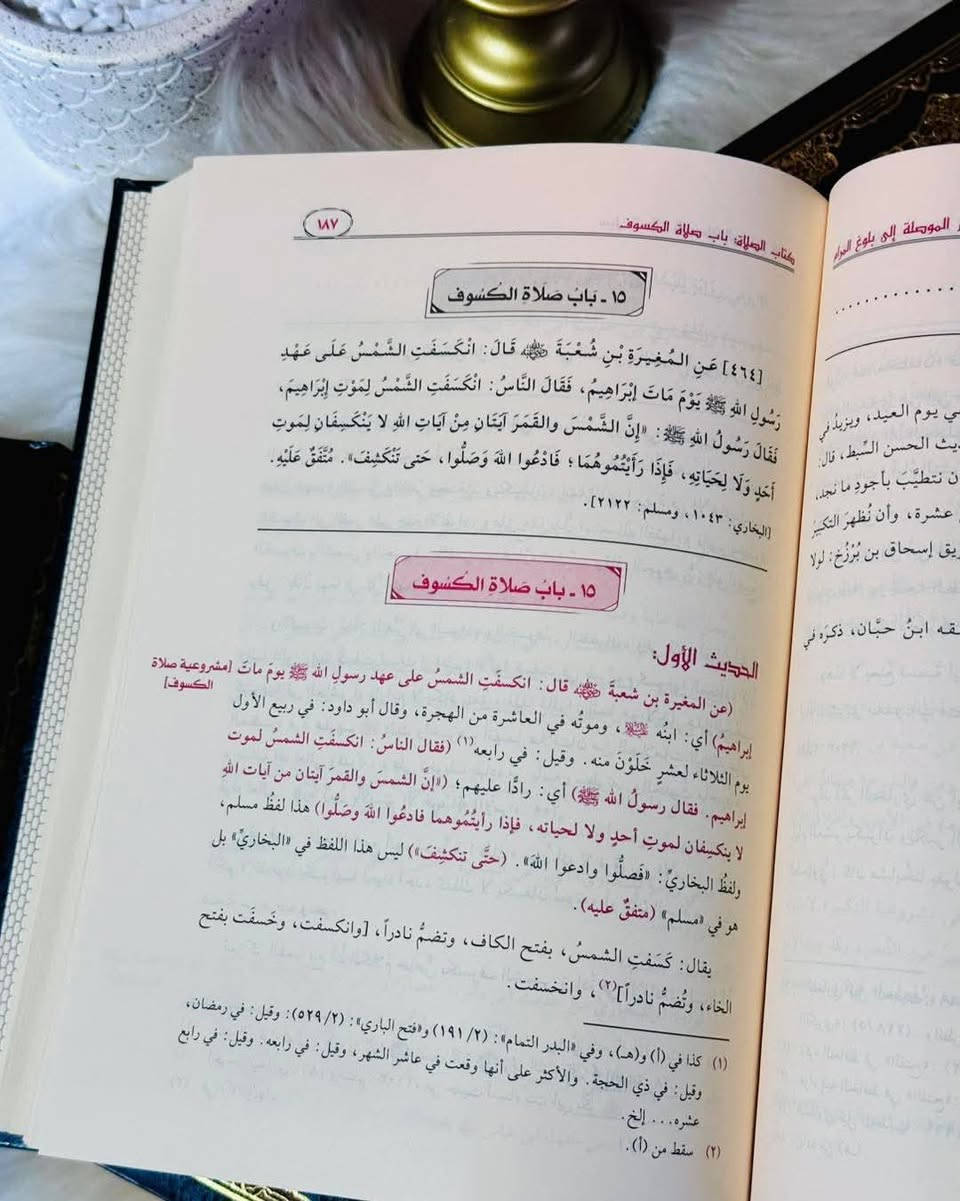 ١٨٧
كتاب الصلاة: باب صلاة الكسوف
١٥ ـ بَابُ صَلَاةِ الكُسُوف
[٤٦٤] عَنِ المُغِيرَةِ بْنِ شُعْبَةَ ﷺ قَالَ: انْكَسَفَتِ الشَّمْسُ عَلَى عَهْدِ
رَسُولِ اللهِ ﷺ يَوْمَ مَاتَ إِبْرَاهِيمُ، فَقَالَ النَّاسُ: انْكَسَفَتِ الشَّمْسُ لِمَوْتِ إِبْرَاهِيمَ،
فَقَالَ رَسُولُ اللهِ ﷺ: «إِنَّ الشَّمْسَ والقَمَرَ آيَتَانِ مِنْ آيَاتِ اللهِ لا يَنْكَسِفَانِ لِمَوتِ
أَحَدٍ وَلَا لِحَيَاتِهِ، فَإِذَا رَأَيْتُمُوهُمَا؛ فَادْعُوا اللهَ وَصَلُّوا، حَتى تَنْكَشِفَ». مُتَّفَقٌ عَلَيْهِ.
[البخاري: ١٠٤٣، ومسلم: ٢١٢٢].
١٥ ـ بابُ صَلاةِ الكُسوف
الحديث الأول:
(عن المغيرة بن شعبةَ ﷺ قال: انكسفَتِ الشمسُ على عهد رسولِ الله ﷺ يومَ ماتَ
[مشروعية صلاة
الكسوف]
إبراهيمُ) أي: ابنُه ﷺ، وموتُه في العاشرة من الهجرة، وقال أبو داود: في ربيع الأول
يوم الثلاثاء لعشرٍ خَلَوْنَ منه. وقيل: في رابعه(١) (فقال الناسُ: انكسفَتِ الشمسُ لموت
إبراهيم. فقال رسولُ الله ﷺ) أي: رادًّا عليهم؛ («إنَّ الشمسَ والقمرَ آيتان من آيات اللهِ
لا ينكسِفان لموتِ أحدٍ ولا لحياته، فإذا رأيتُمُوهما فادعُوا اللهَ وصَلُّوا) هذا لفظُ مسلم،
ولفظُ البخاريِّ: «فَصلُّوا وادعوا اللهَ». (حتَّى تنكشِفَ») ليس هذا اللفظ في «البخاريِّ» بل
هو في «مسلم» (متفقٌ عليه).
يقال: كَسَفتِ الشمسُ، بفتح الكاف، وتضمُّ نادراً، [وانكسفت، وخَسفَت بفتح
الخاء، وتُضمُّ نادراً](٢)، وانخسفت.
(١) كذا في (أ) و(هـ)، وفي «البدر التمام»: (٢/ ١٩١) و«فتح الباري»: (٢/ ٥٢٩): وقيل: في رمضان،
وقيل: في ذي الحجة. والأكثر على أنها وقعت في عاشر الشهر، وقيل: في رابعه. وقيل: في رابع
عشره... إلخ.
(٢) سقط من (أ).
الموصلة إلى بلوغ المرام
في يوم العيد، ويزيدُ في
يث الحسن السِّبط، قال:
ن نتطيَّبَ بأجودِ ما نجد،
عشرة، وأن نُظهرَ التكبيرَ
ريق إسحاق بن بُزُرْخ: لولا
قه ابنُ حبَّان، ذكرَه في